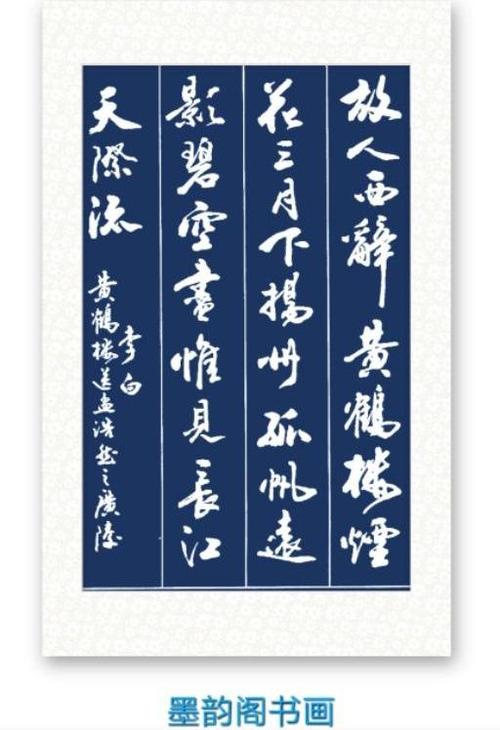 故人西辭黄鶴楼煙
花三月下揚州孤帆遠
影碧空盡惟見長江
天際流
李白
黄鶴楼送孟浩然之廣陵
墨韵阁书画